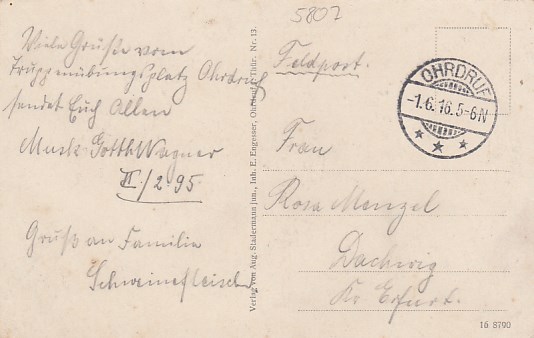 5802
Viele Grüße vom
Truppenübungsplatz Ohrdruf
sendet Euch Allen
Musk. Gotth. Wagner
II./2.95
Gruß an Familie
Schweinefleisch
Verlag von Aug. Stadermann jun., Inh. E. Engesser, Ohrdruf i. Thür. Nr. 13.
Feldpost.
OHRDRUF
-1.6.16.5-6N
Frau
Rosa Menzel
Dachwig
Kr. Erfurt.
16 8790